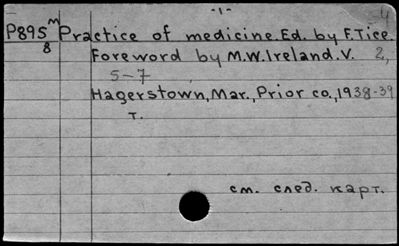 -1- 4
P895 m Practice of medicine. Ed. by F. Tice.
8 Foreword by M.W. Ireland. V. 2,
5-7
Hagerstown, Mar., Prior co., 1938-39
т.
см. след. карт.